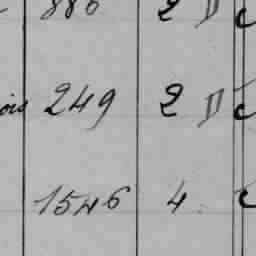 886 2 D
ois 249 2 D
1546 4